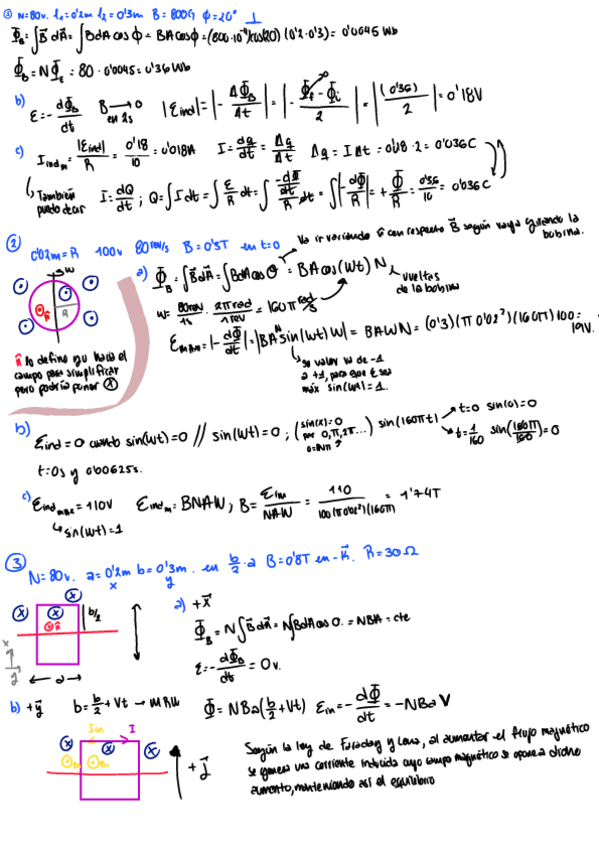 ① N=80v. l₁=0'2m l₂=0'3m B=800G φ=20° ⊥
Φ_B = ∫B⃗dA⃗ = ∫BdA cosφ = BA cosφ = (800·10⁻⁴)(cos20)(0'2·0'3) = 0'0045 Wb
Φ_B = NΦ_E = 80·0'0045 = 0'36 Wb
b) ε = -dΦ_B/dt B → 0 en 2s |εind| = |-ΔΦ_B/Δt| = |-(Φ_f - Φ_i)/2| = |(0'36)/2| = 0'18V
c) I ind_m = |εind|/R = 0'18/10 = 0'018A I = dq/dt = Δq/Δt Δq = IΔt = 0'018·2 = 0'036C
También puedo usar I = dQ/dt ; Q = ∫Idt = ∫ε/R dt = ∫(-dΦ/dt)/R dt = ∫|-dΦ|/R = +Φ/R = 0'36/10 = 0'036C
② 0'02m=R 100v 80rev/s B=0'3T en t=0
Va ir variando θ con respecto B⃗ según vaya girando la bobina.
w
a) Φ_B = ∫B⃗dA⃗ = ∫BdA cosθ = BA cos(wt) N
vueltas de la bobina
R
w = 80rev/1s · 2π rad/1 rev = 160π rad/s
ε max = |-dΦ/dt| = |BA^N sin(wt) w| = BAWN = (0'3)(π0'02²)(160π)100 = 19V.
n⃗ lo defino yo hacia el campo para simplificar pero podría poner ⊗
su valor va de -1 a +1, para que ε sea máx sin(wt)=1.
b) εind=0 cuando sin(wt)=0 // sin(wt)=0 ; (sin(x)=0 por 0,π,2π...) sin(160πt) t=0 sin(0)=0
t=1/160 sin(160π/160)=0
t=0s y 0'00625s.
c) εind max = 110V εind_m = BNAW ; B = εim/NAW = 110/100(π0'02²)(160π) = 1'74T
sin(wt)=1
③ N=80v. a=0'2m b=0'3m. en b/2·a B=0'8T en -k⃗. R=30Ω
x y
b/2
a
a) +x⃗
Φ_B = N∫B⃗dA⃗ = N∫BdA cos0 = NBA = cte
ε = -dΦ_B/dt = 0v.
b) +y⃗ b = b/2 + Vt → MRU Φ = NBa(b/2+Vt) εin = -dΦ/dt = -NBa V
Iin I
+j⃗
Según la ley de Faraday y Lenz, al aumentar el flujo magnético
se genera una corriente inducida cuyo campo magnético se opone a dicho
aumento, manteniendo así el equilibrio